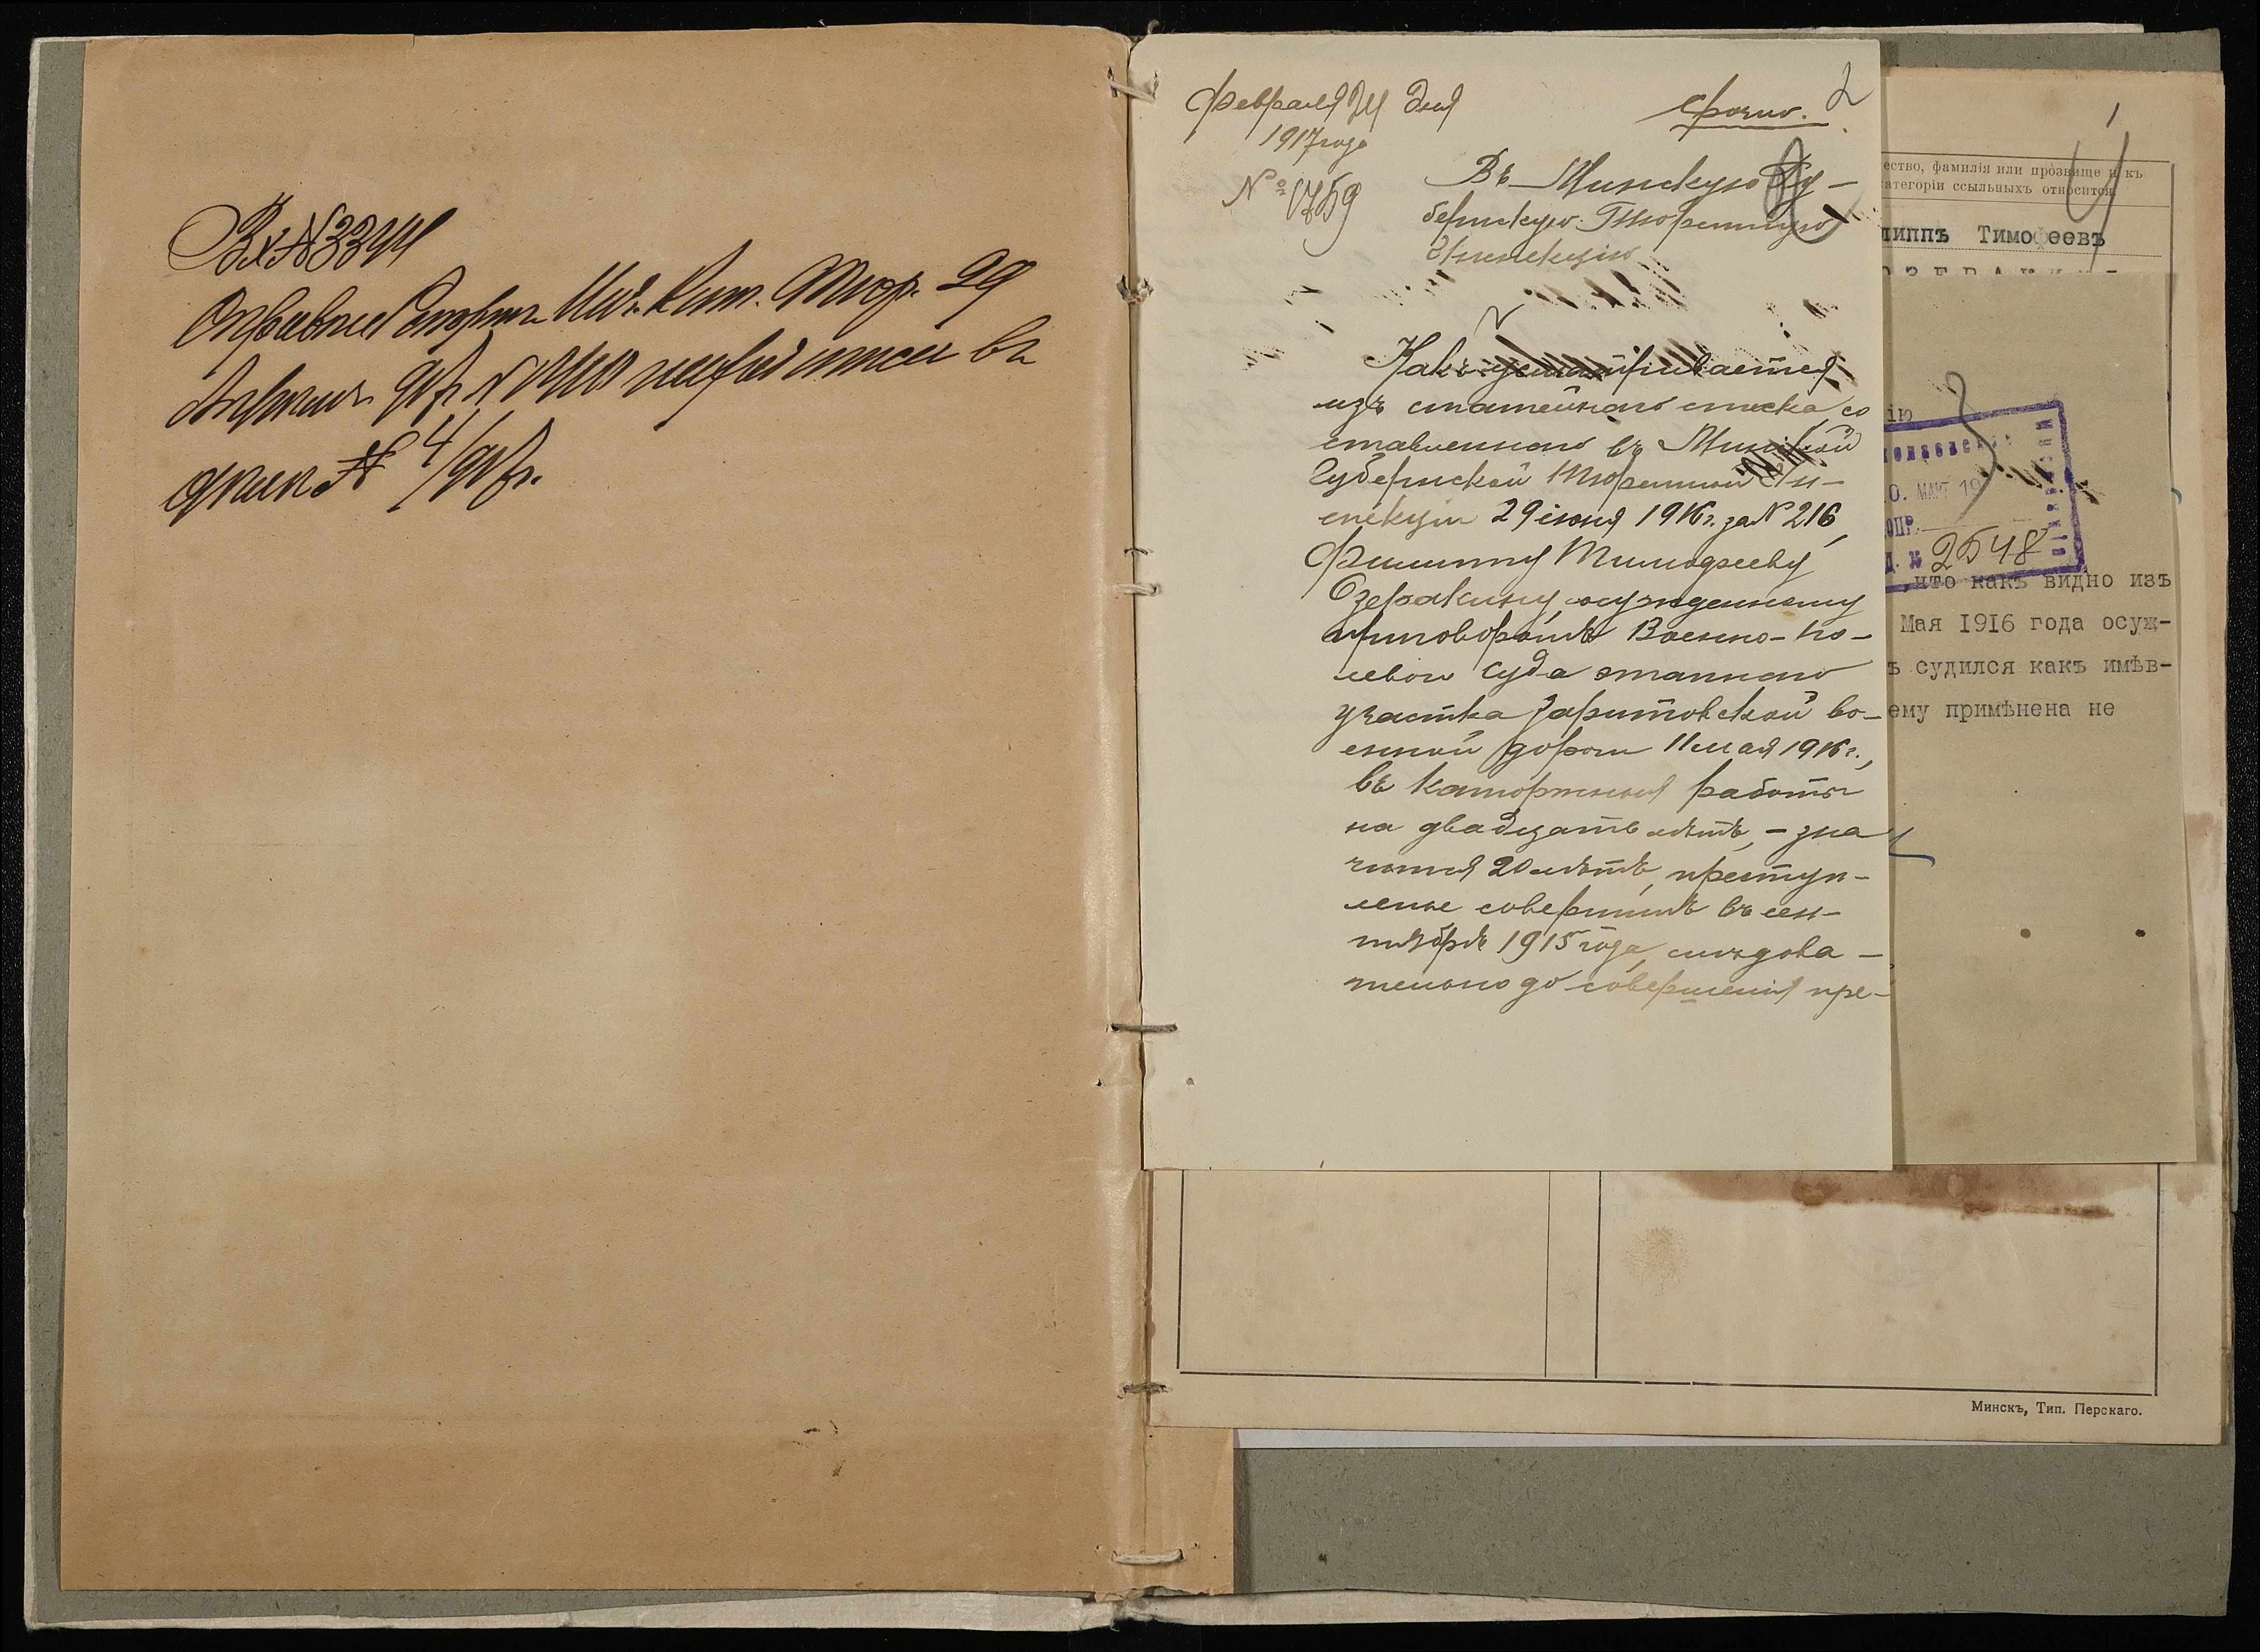 Вх № 3344
Мин. Кат. Тюр. 29
находится въ
№ 4/917г.
Февраля 24 дня
1917 года
№ 1759
Срочно.
2
Въ Минскую Гу-
бернскую Тюремную
Инспекцію
Какъ усматривается
изъ статейнаго списка со
ставленнаго въ Минской
Губернской Тюремной Ин-
спекціи 29 іюня 1916 г. за № 216,
Филиппу Тимофееву
Озеракину, осужденному
приговоромъ Военно-по-
левого суда этапнаго
участка
во-
енной дороги 11 мая 1916 г.,
въ Каторжныя работы
на двадцать лѣтъ, - зна
чится 20 лѣтъ, преступ-
леніе совершилъ въ сен-
тябрѣ 1915 года, слѣдова-
тельно до совершенія пре-
1
ество, фамилія или прозвище и къ
атегоріи ссыльныхъ относится
липпъ Тимофеевъ
ію
0. МАРТ 19
2548
,что какъ видно изъ
Мая 1916 года осуж-
ъ судился какъ имѣв-
ему примѣнена не
Минскъ, Тип. Перскаго.